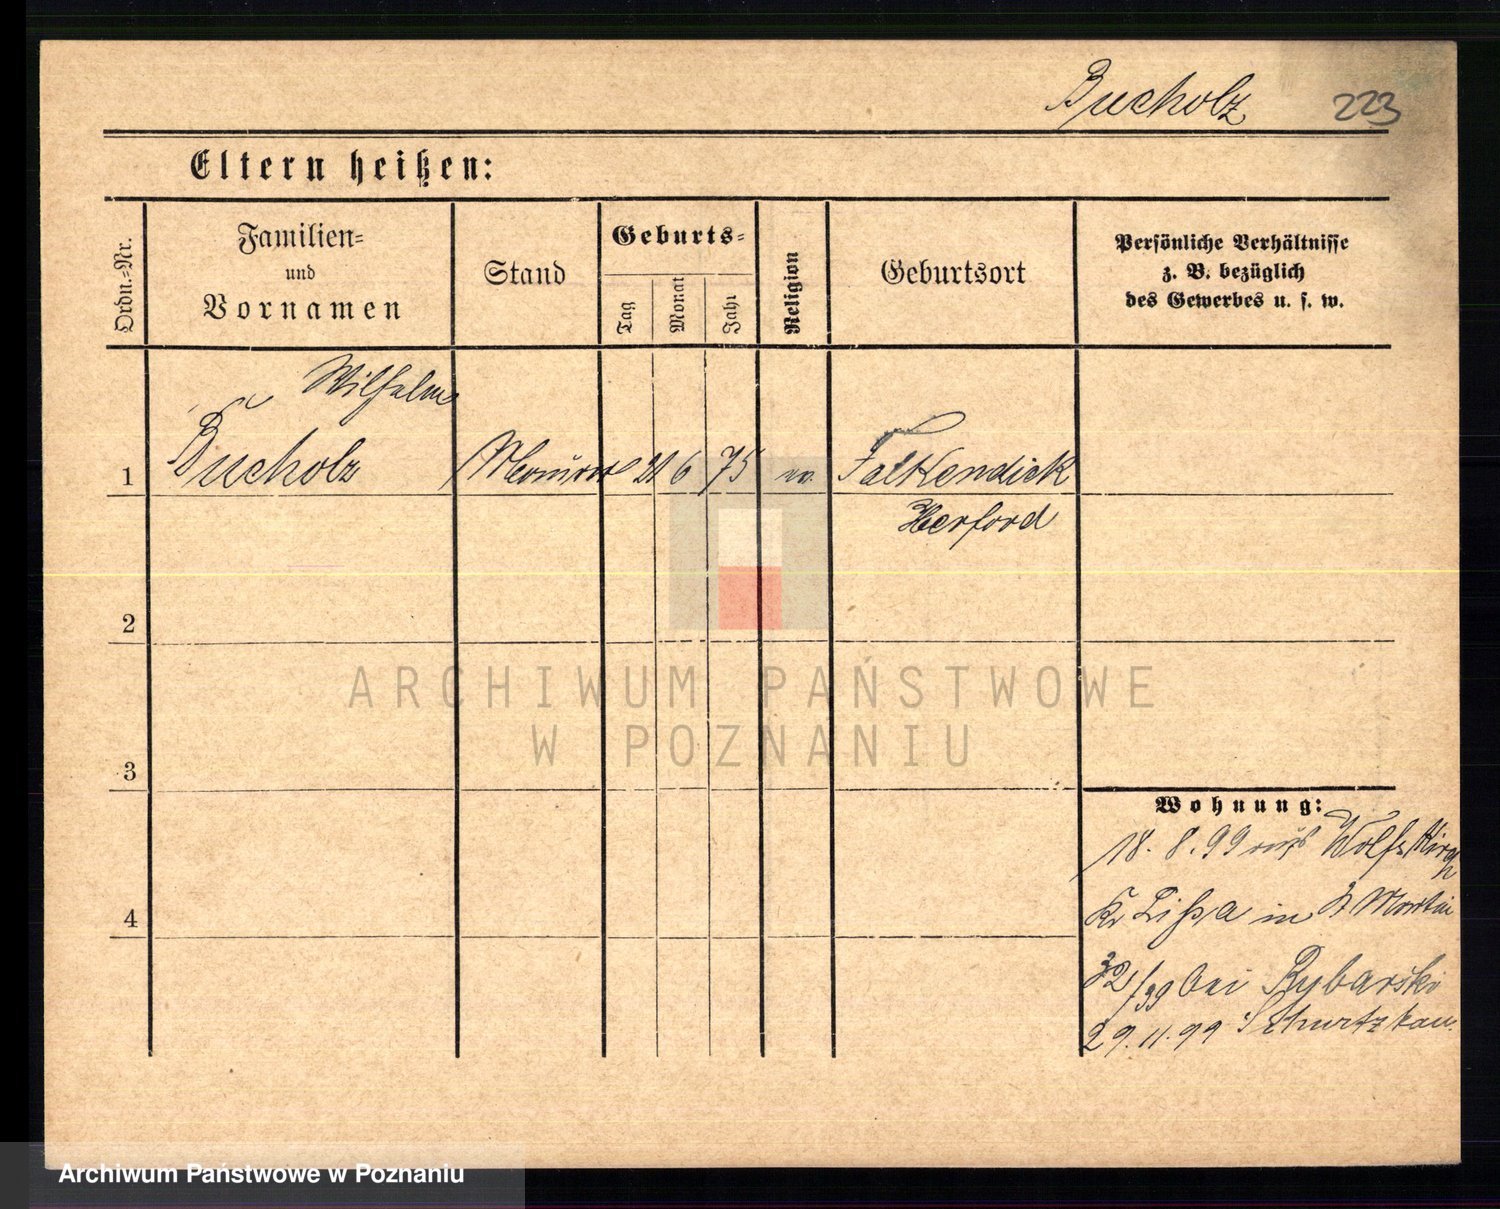 Bucholz 223
Eltern heißen:
Ordn.=Nr.
Familien=
und
Vornamen
Stand
Geburts=
Tag
Monat
Jahr
Religion
Geburtsort
Persönliche Verhältnisse
z. B. bezüglich
des Gewerbes u. s. w.
Wilhelm
1 Bucholz Maurer 21 6 75 ev. Falkendiek
Herford
2
3
4
Wohnung:
18. 8. 99 aus Wolfskirch
Kr Lissa in St Martin
32/39 bei Rybarski
29. 11. 99
ARCHIWUM PAŃSTWOWE
W POZNANIU
Archiwum Państwowe w Poznaniu